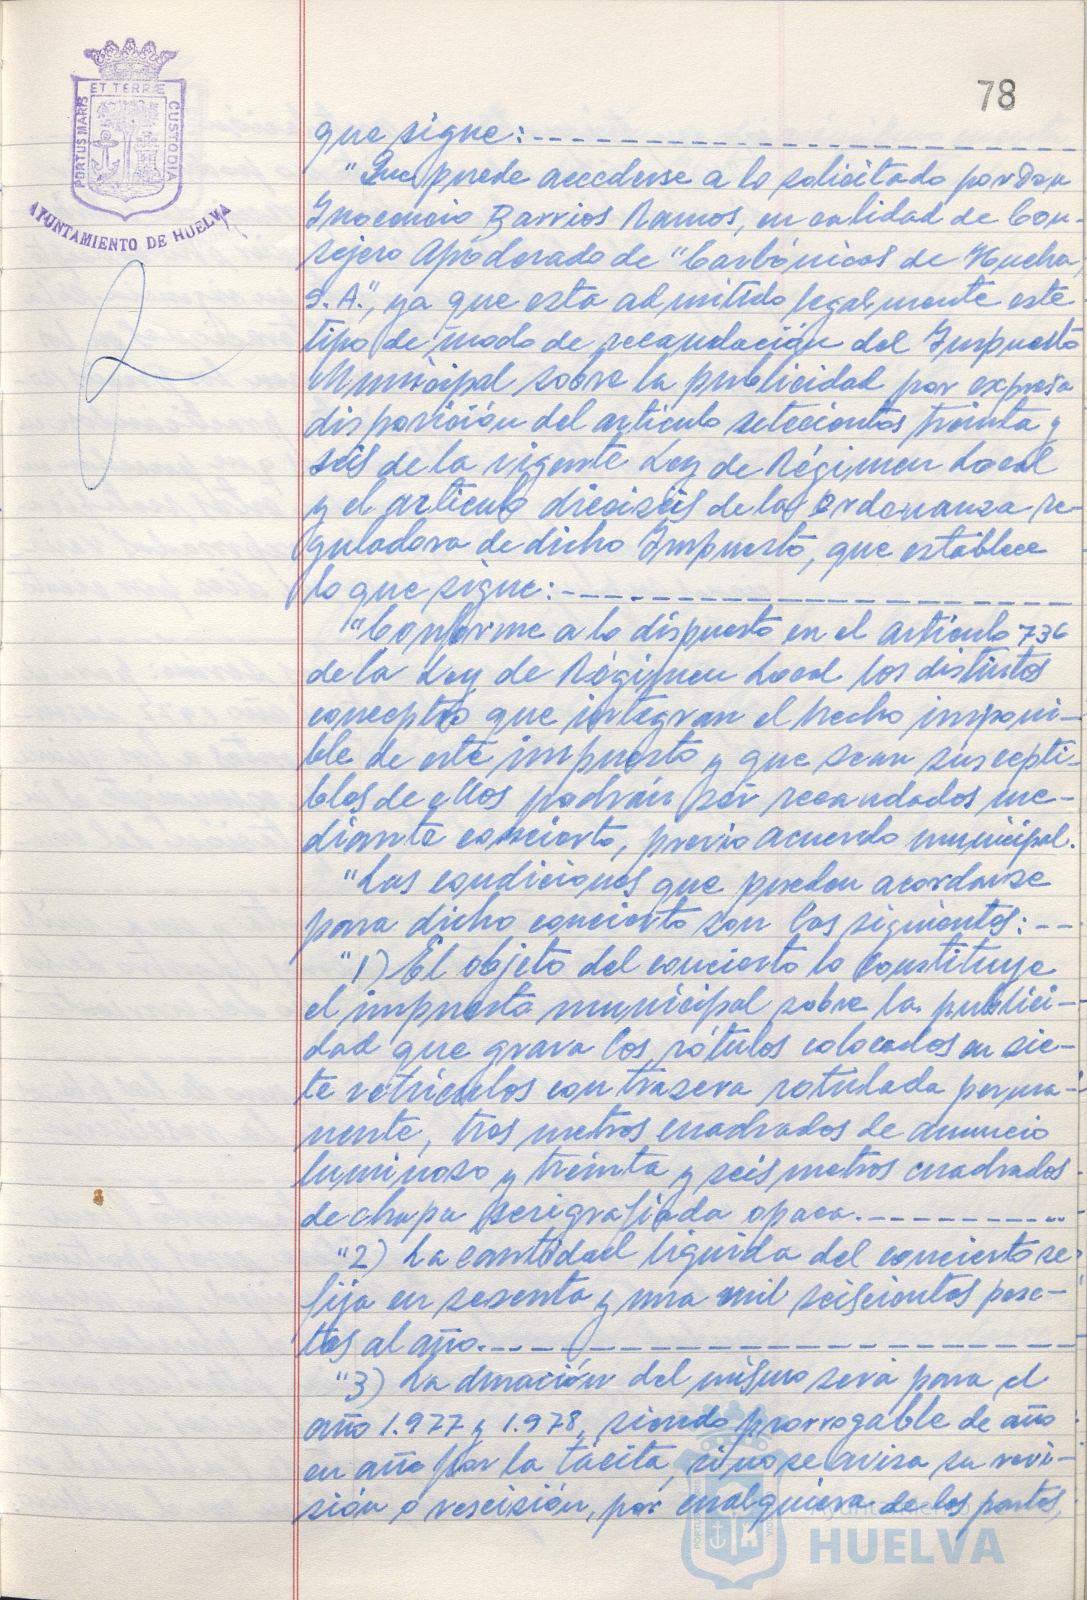 78
ET TERRÆ
PORTUS MARIS
CUSTODIA
AYUNTAMIENTO DE HUELVA
que sigue:
"Que puede accederse a lo solicitado por Don
Inocencio Barrios Ramos, en calidad de Con-
sejero Apoderado de "Carbónicas de Hucha
S.A.", ya que esta admitido legalmente este
tipo de modo de recaudación del Impuesto
Municipal sobre la publicidad por expresa
disposición del artículo setecientos treinta y
seis de la vigente Ley de Régimen Local
y el artículo dieciseis de la Ordenanza re-
guladora de dicho Impuesto, que establece
lo que sigue:
"Conforme a lo dispuesto en el artículo 736
de la Ley de Régimen Local los distintos
conceptos que integran el hecho imponi-
ble de este impuesto y que sean suscepti-
bles de ellos podrán ser recaudados me-
diante concierto, previo acuerdo municipal.
"Las condiciones que pueden acordarse
para dicho concierto son las siguientes:
"1) El objeto del concierto lo constituye
el impuesto municipal sobre la publici-
dad que grava los rótulos colocados en sie-
te vehículos con trasera rotulada perma-
nente, tres metros cuadrados de anuncio
luminoso y treinta y seis metros cuadrados
de chapa serigrafiada opaca.
"2) La cantidad líquida del concierto se
fija en sesenta y una mil seiscientas pese-
tas al año.
"3) La duración del mismo será para el
año 1.977 y 1.978, siendo prorrogable de año
en año por la tácita, si no se avisa su revi-
sión o rescisión, por cualquiera de las partes,
Ayuntamiento
HUELVA